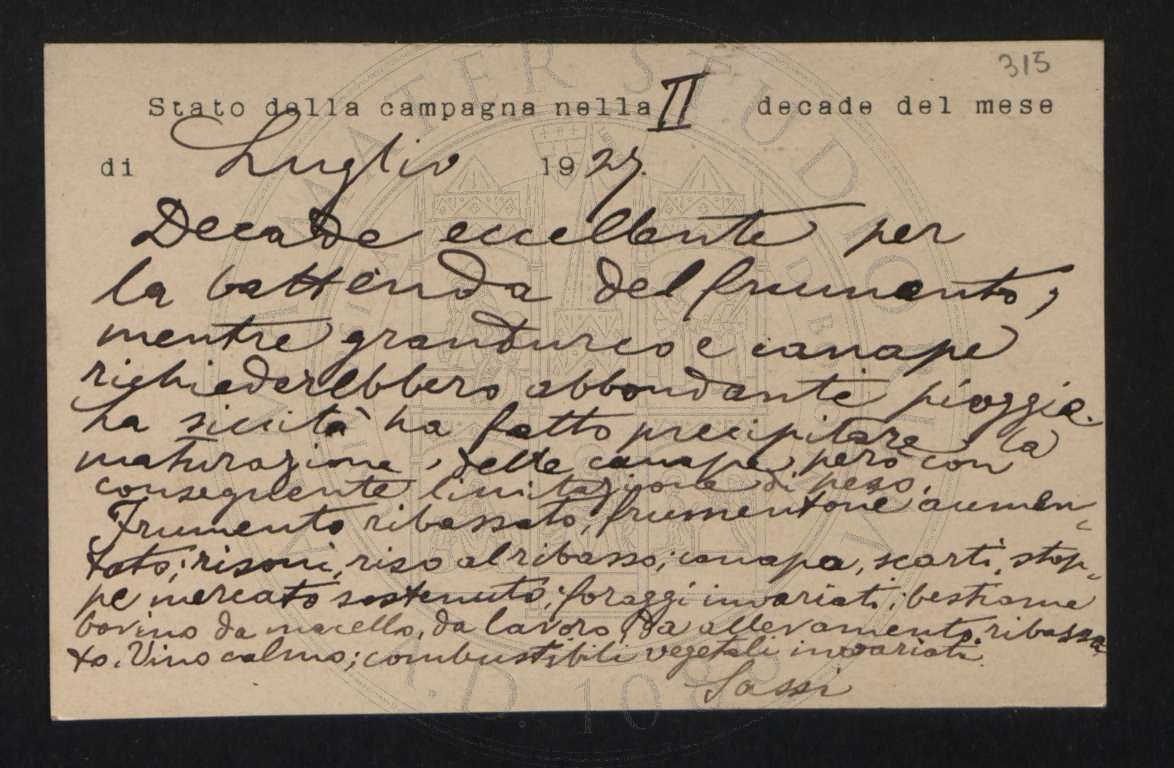 315
Stato della campagna nella II decade del mese
di Luglio 1927.
Decade eccellente per
la battenda del frumento,
mentre granturco e canape
richiederebbero abbondante pioggia.
La siccità ha fatto precipitare la
maturazione delle canape, però con
conseguente limitazione di peso.
Frumento ribassato, frumentone aumen-
tato; risoni, riso al ribasso; canapa, scarti, stop-
pe mercato sostenuto; foraggi invariati; bestiame
bovino da macello, da lavoro, da allevamento ribassa
to. Vino calmo; combustibili vegetali invariati.
Sassi